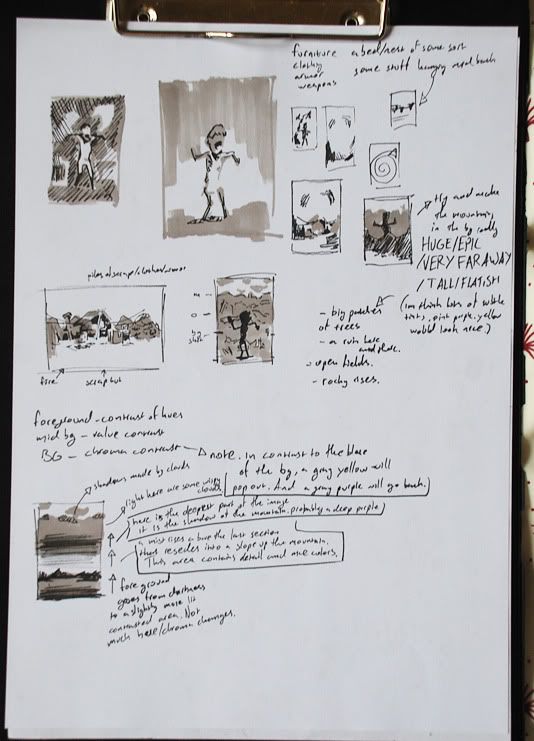 furniture
clothing
armor
weapons
a bed/nest of some sort
some stuff hanging
try and make
the mountains
in the bg really
HUGE/EPIC
/VERY FARAWAY
/TALL/FLATISH
(im think lots of subtle
tints, pink purple, yellow
would look nice.)
piles of scrap/clothes/armor
fore
scrap hut
me
o
bg
- big patches
of trees
- a ruin here
and there.
- open fields.
- rocky rises.
foreground - contrast of hues
mid bg - value contrast
BG - chroma contrast
note. in contrast to the blue
of the bg, a gray yellow will
pop out. And a gray purple will go back.
shadows made by clouds
right here are some wispy
clouds
here is the deepest part of the image
it is the shadow of the mountain. probably a deep purple
a mist rises above the last section
that resedes into a slope up the mountain.
This area contains detail and more colors.
foreground
goes from darkness
to a slightly more lit
contrasted area. Not
much hue/chroma changes.